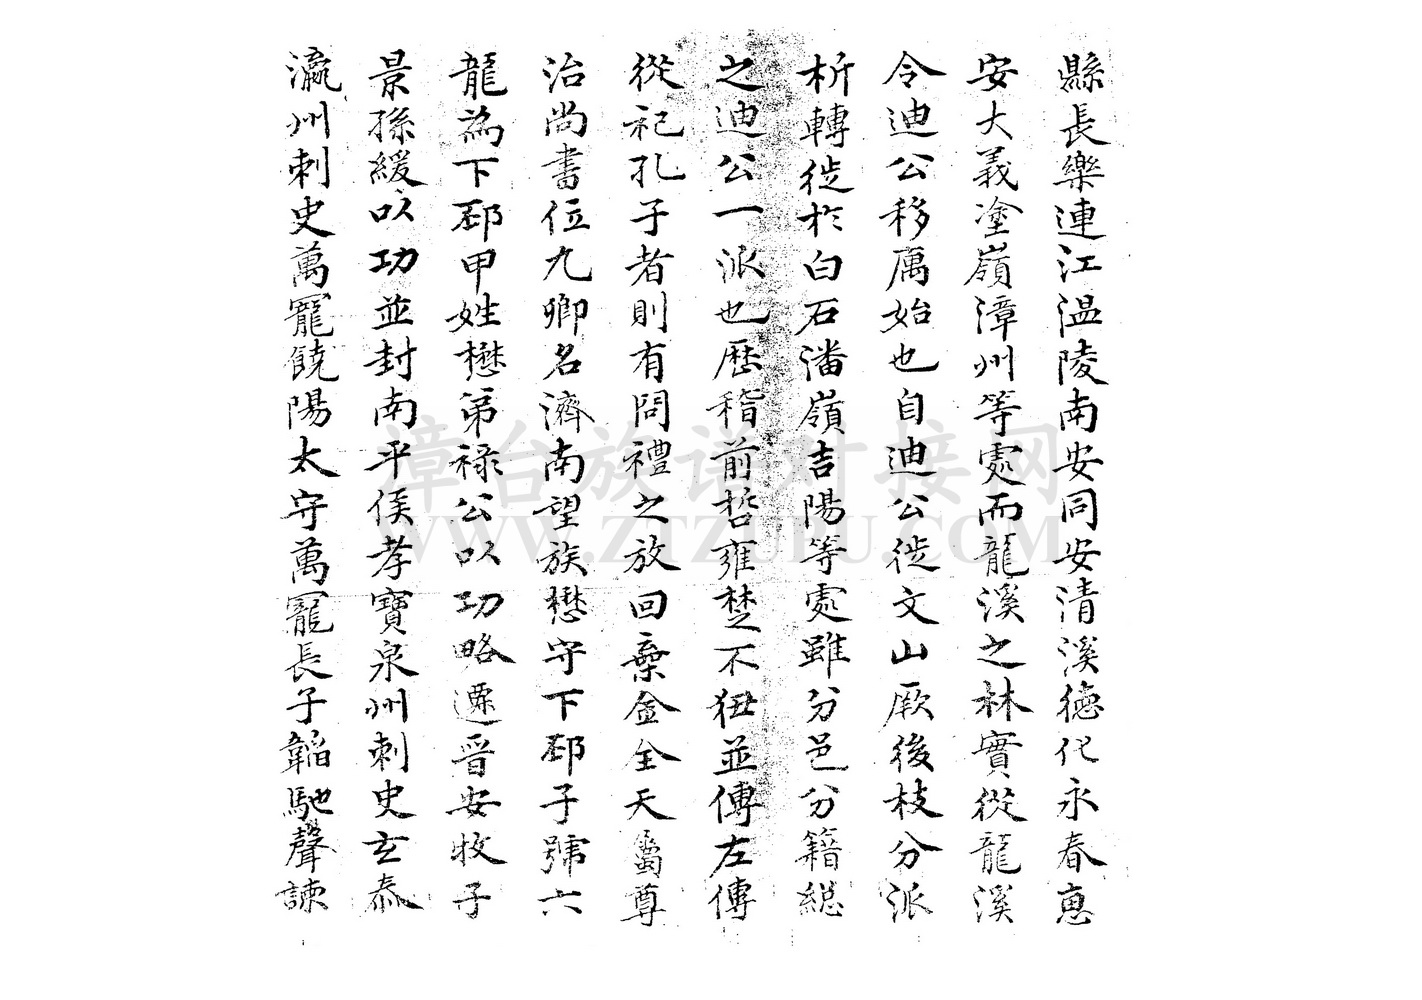 縣長樂連江温陵南安同安清溪德化永春惠
安大義塗嶺漳州等處而龍溪之林實從龍溪
令迪公移厲始也自迪公徙文山厥後枝分派
析轉徙於白石潘嶺吉陽等處雖分邑分籍總
之迪公一派也歷稽前哲雍楚不狃並傳左傳
從祀孔子者則有問禮之放回棄金全天屬尊
治尚書位九卿名濟南望族懋守下邳子號六
龍為下邳甲姓懋第祿公以功略遷晋安牧子
景孫緩以功並封南平侯孝寶泉州刺史玄泰
瀛州刺史萬寵饒陽太守萬寵長子韜馳聲諫
漳台族谱对接网
WWW.ZTZUPU.COM